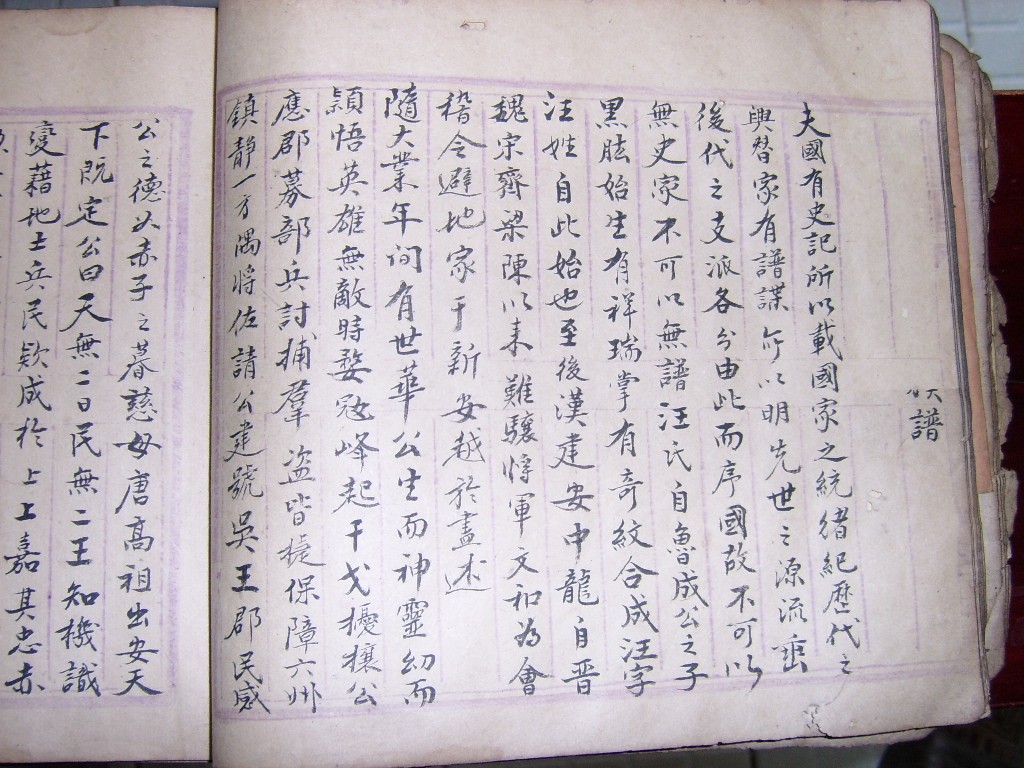 譜
夫國有史記所以載國家之統緒紀歷代之
興替家有譜諜所以明先世之源流垂
後代之支派各分由此而序國故不可以
無史家不可以無譜汪氏自魯成公之子
黑肱始生有祥瑞掌有奇紋合成汪字
汪姓自此始也至後漢建安中龍自晋
魏宋齊梁陳以来難驤將軍文和為會
稽令避地家于新安越於盡述
隨大業年间有世華公生而神靈幼而
穎悟英雄無敵時婺冦峰起干戈擾攘公
應郡募部兵討捕羣盗皆捷保障六州
鎮静一方隅將佐請公建號吳王郡民感
公之德父赤子之暮慈母唐高祖出安天
下既定公曰天無二日民無二王知機識
變藉地土兵民欵成於上上嘉其忠赤